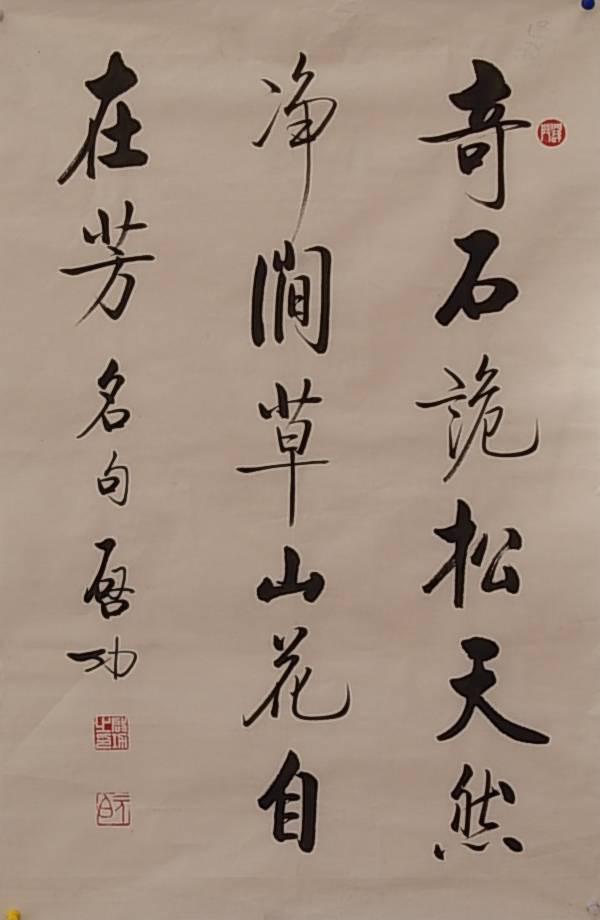 奇石詭松天然
净澗草山花自
在芳 名句 啓功